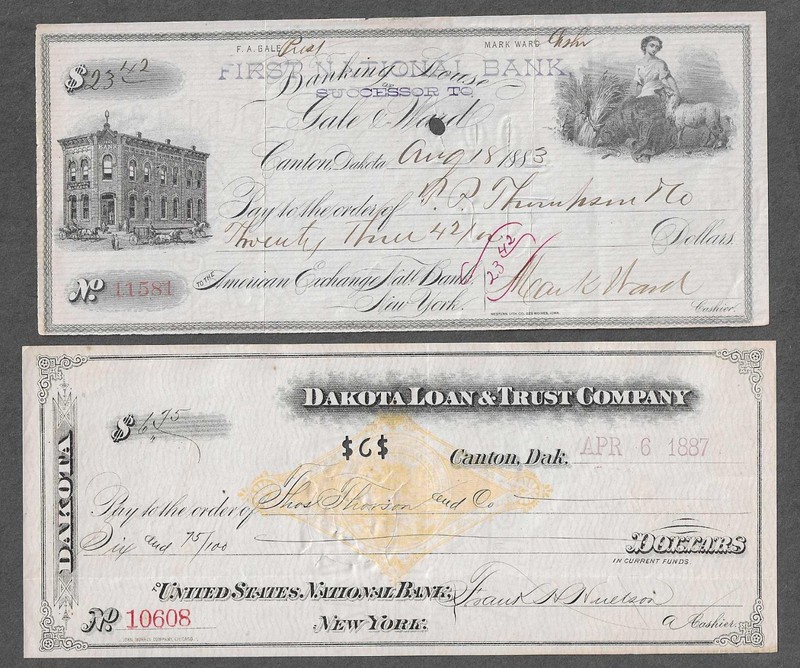 F. A. GALE Prest
MARK WARD Cashr
$23 42
FIRST NATIONAL BANK,
Banking House
SUCCESSOR TO
Gale & Ward
Canton, Dakota, Aug 18 1883
Pay to the order of Thompson & Co
Twenty Three 42/00 Dollars.
TO THE American Exchange Natl. Bank,
New York.
23 42
Mark Ward
Cashier.
No 11581
WESTERN LITH. CO. DES MOINES, IOWA.
DAKOTA LOAN & TRUST COMPANY
$ 6.75
$6$
Canton, Dak. APR 6 1887
DAKOTA
Pay to the order of Thos Thorson and Co
Six and 75/100 DOLLARS
IN CURRENT FUNDS
To UNITED STATES NATIONAL BANK,
NEW YORK.
Frank
A. Cashier.
No 10608